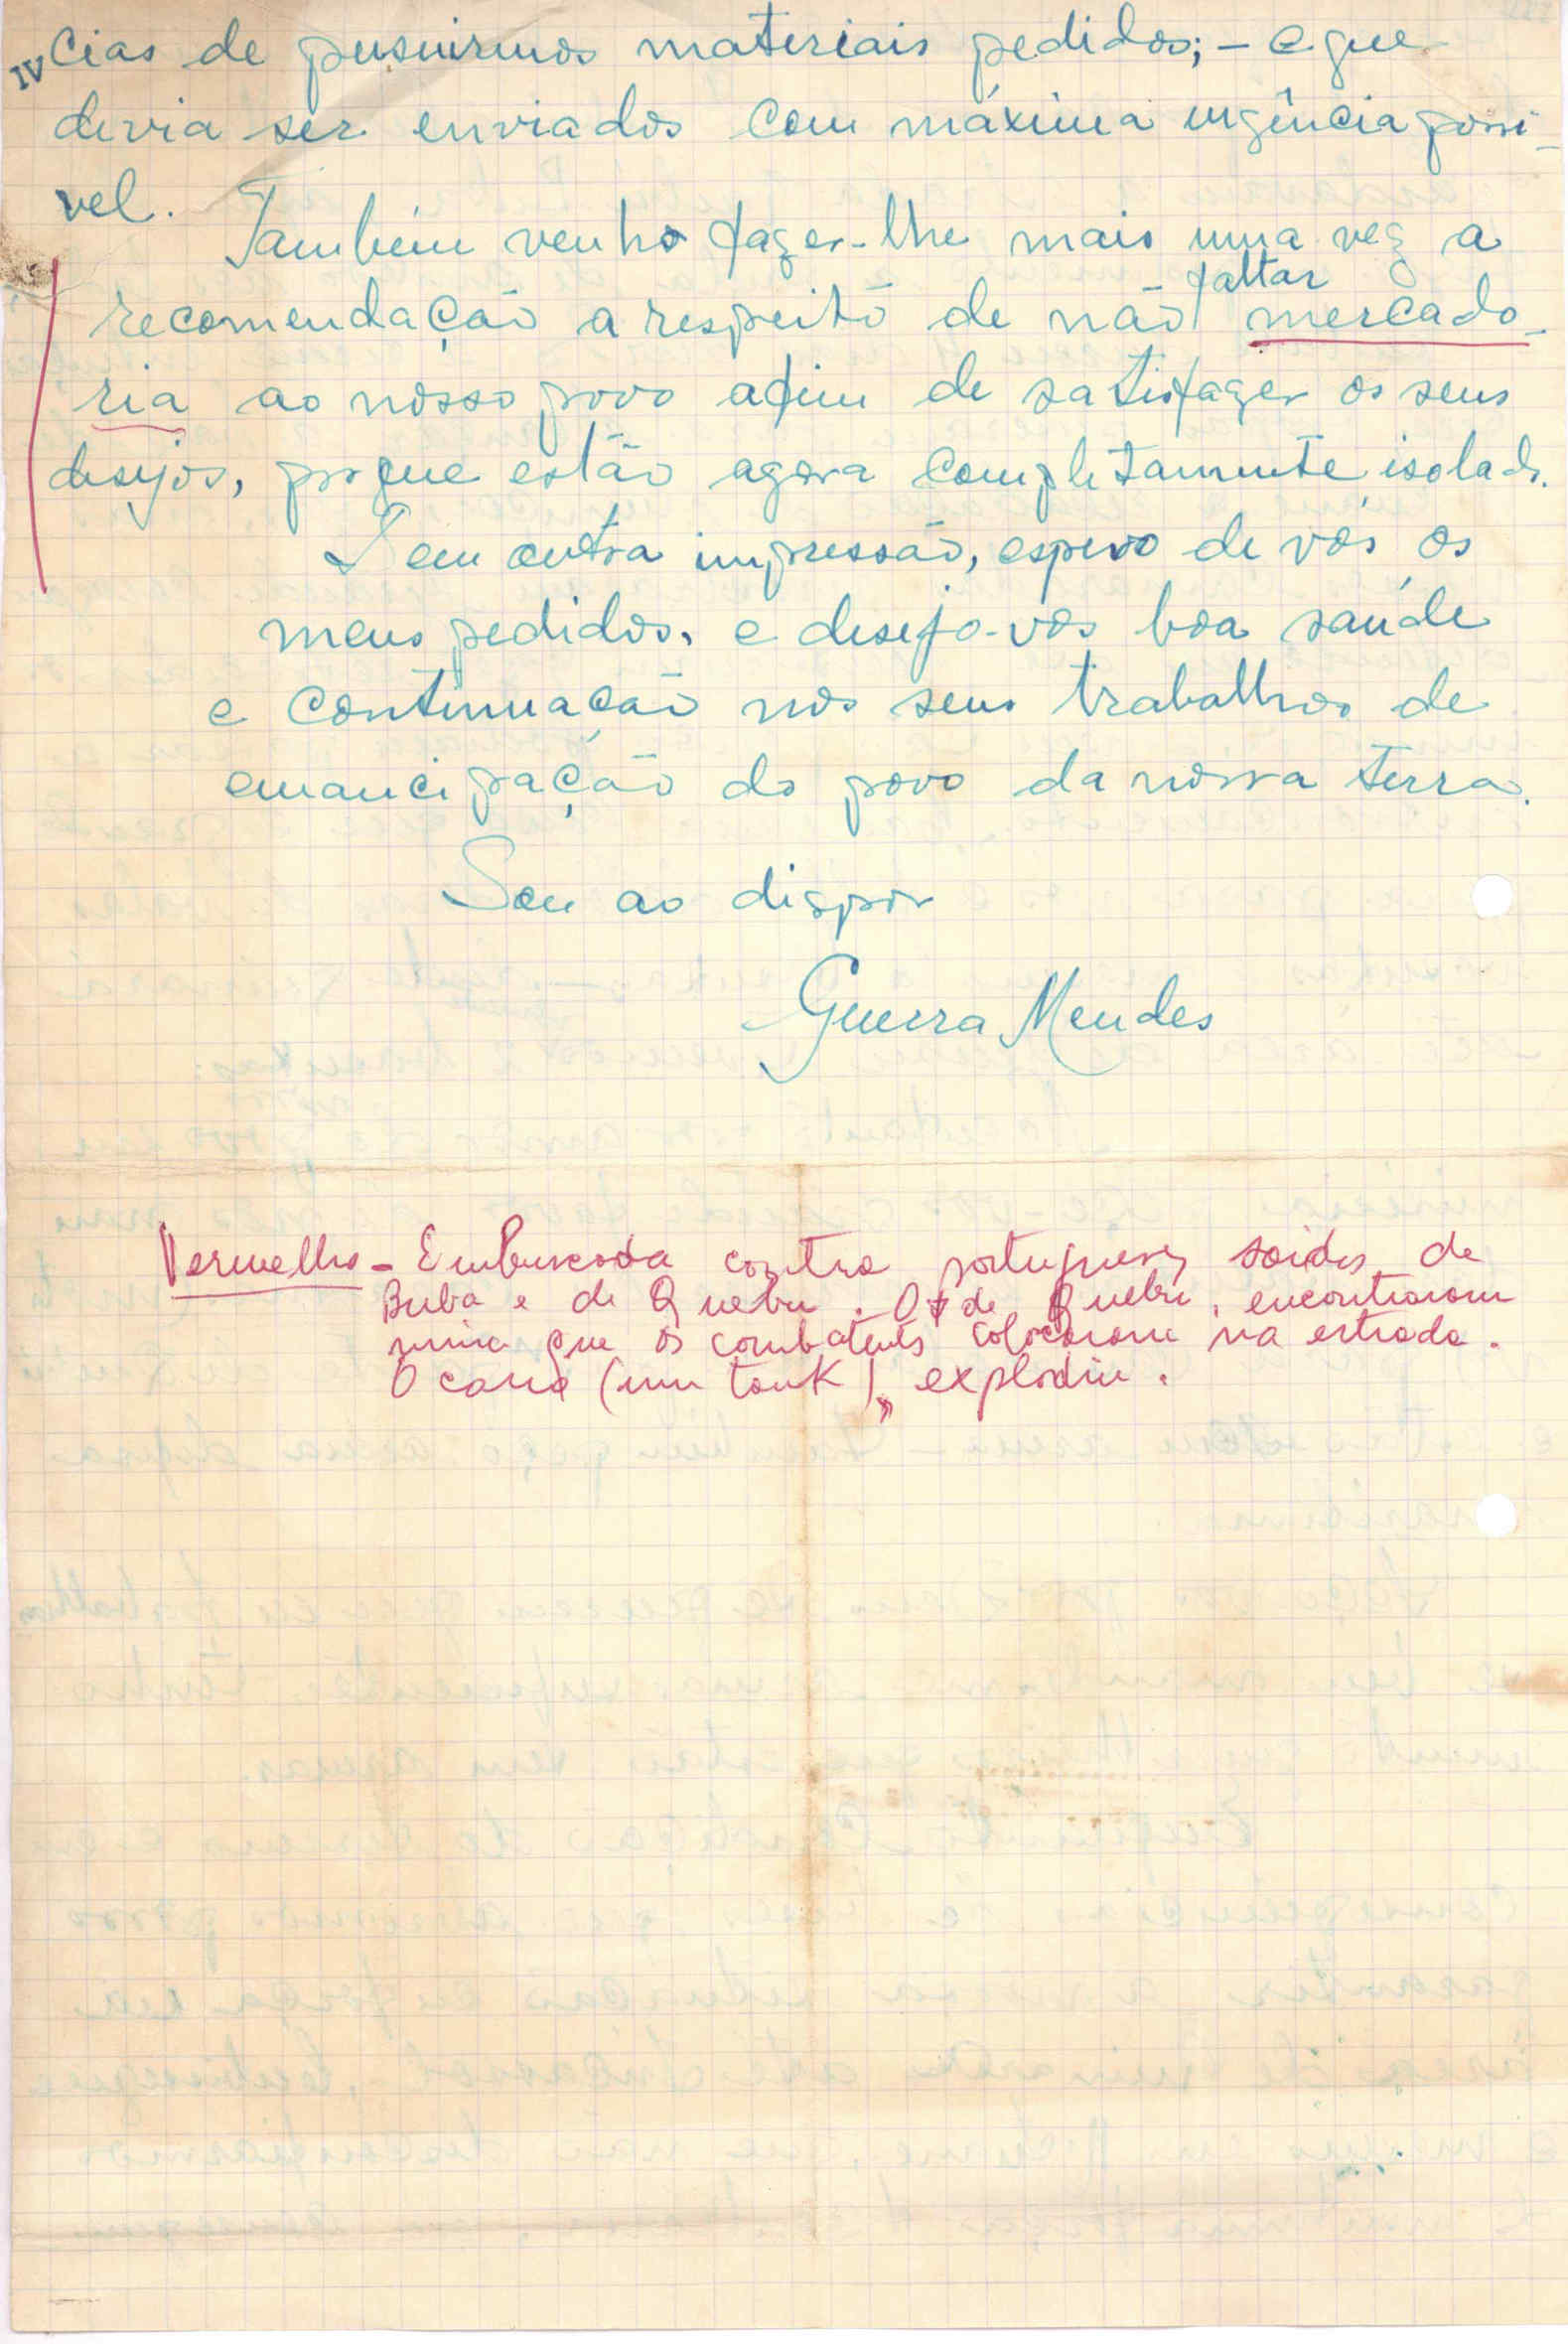 IV cias de possuirmos materiais pedidos; - e que
devia ser enviados com máxima urgência possi-
vel.
Também venho fazer-lhe mais uma vez a
recomendação a respeito de não faltar mercado-
ria ao nosso povo afim de satisfazer os seus
desejos, porque estão agora completamente isolado.
Sem outra impressão, espero de vós os
meus pedidos, e desejo-vos boa saúde
e continuação nos seus trabalhos de
emancipação do povo da nossa terra.
Sou ao dispor
Guerra Mendes
Vermelho - Emburcada contra portugueses saidos de
Buba e de Quebu. Os de Quebu, encontraram
mina que os combatentes colocaram na estrada.
O carro (um tank), explodiu.